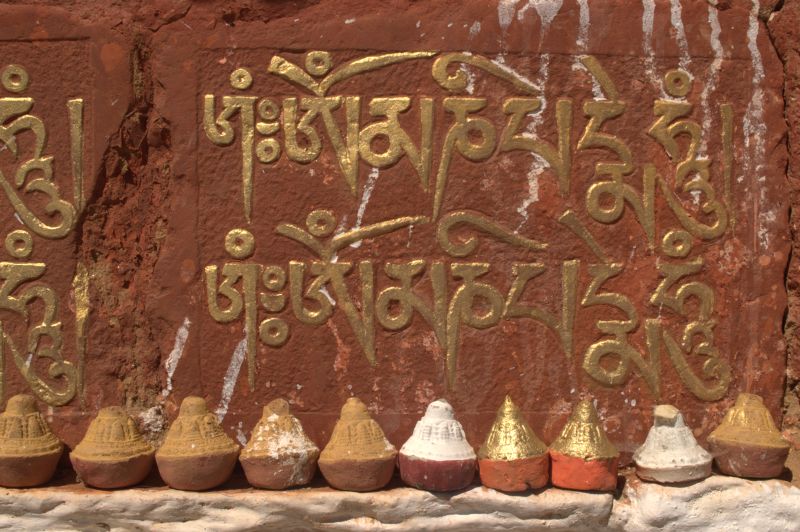 ཧཱུྃ།
ཧཱུྃ།
༃ཨོཾ་མ་ཎི་པདྨེ་ཧཱུྃ།
༃ཨོཾ་མ་ཎི་པདྨེ་ཧཱུྃ